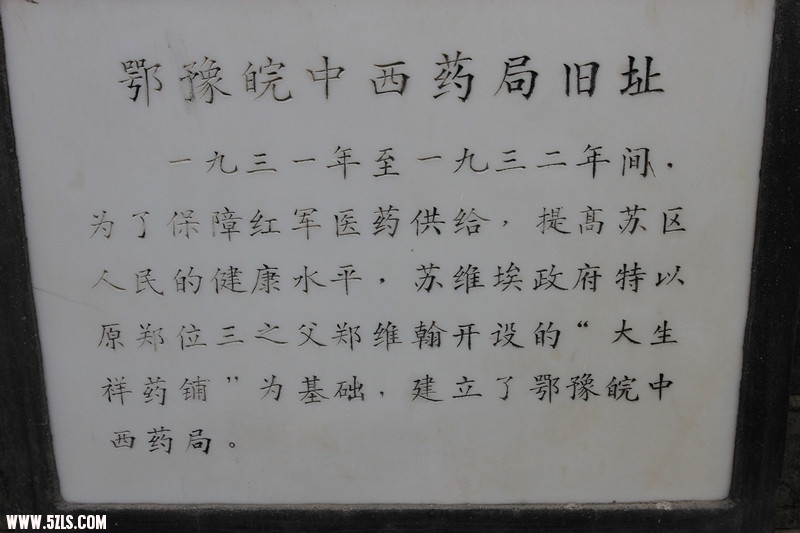 鄂豫皖中西药局旧址
一九三一年至一九三二年间，
为了保障红军医药供给，提高苏区
人民的健康水平，苏维埃政府特以
原郑位三之父郑维翰开设的“大生
祥药铺”为基础，建立了鄂豫皖中
西药局。
WWW.5ZLS.COM